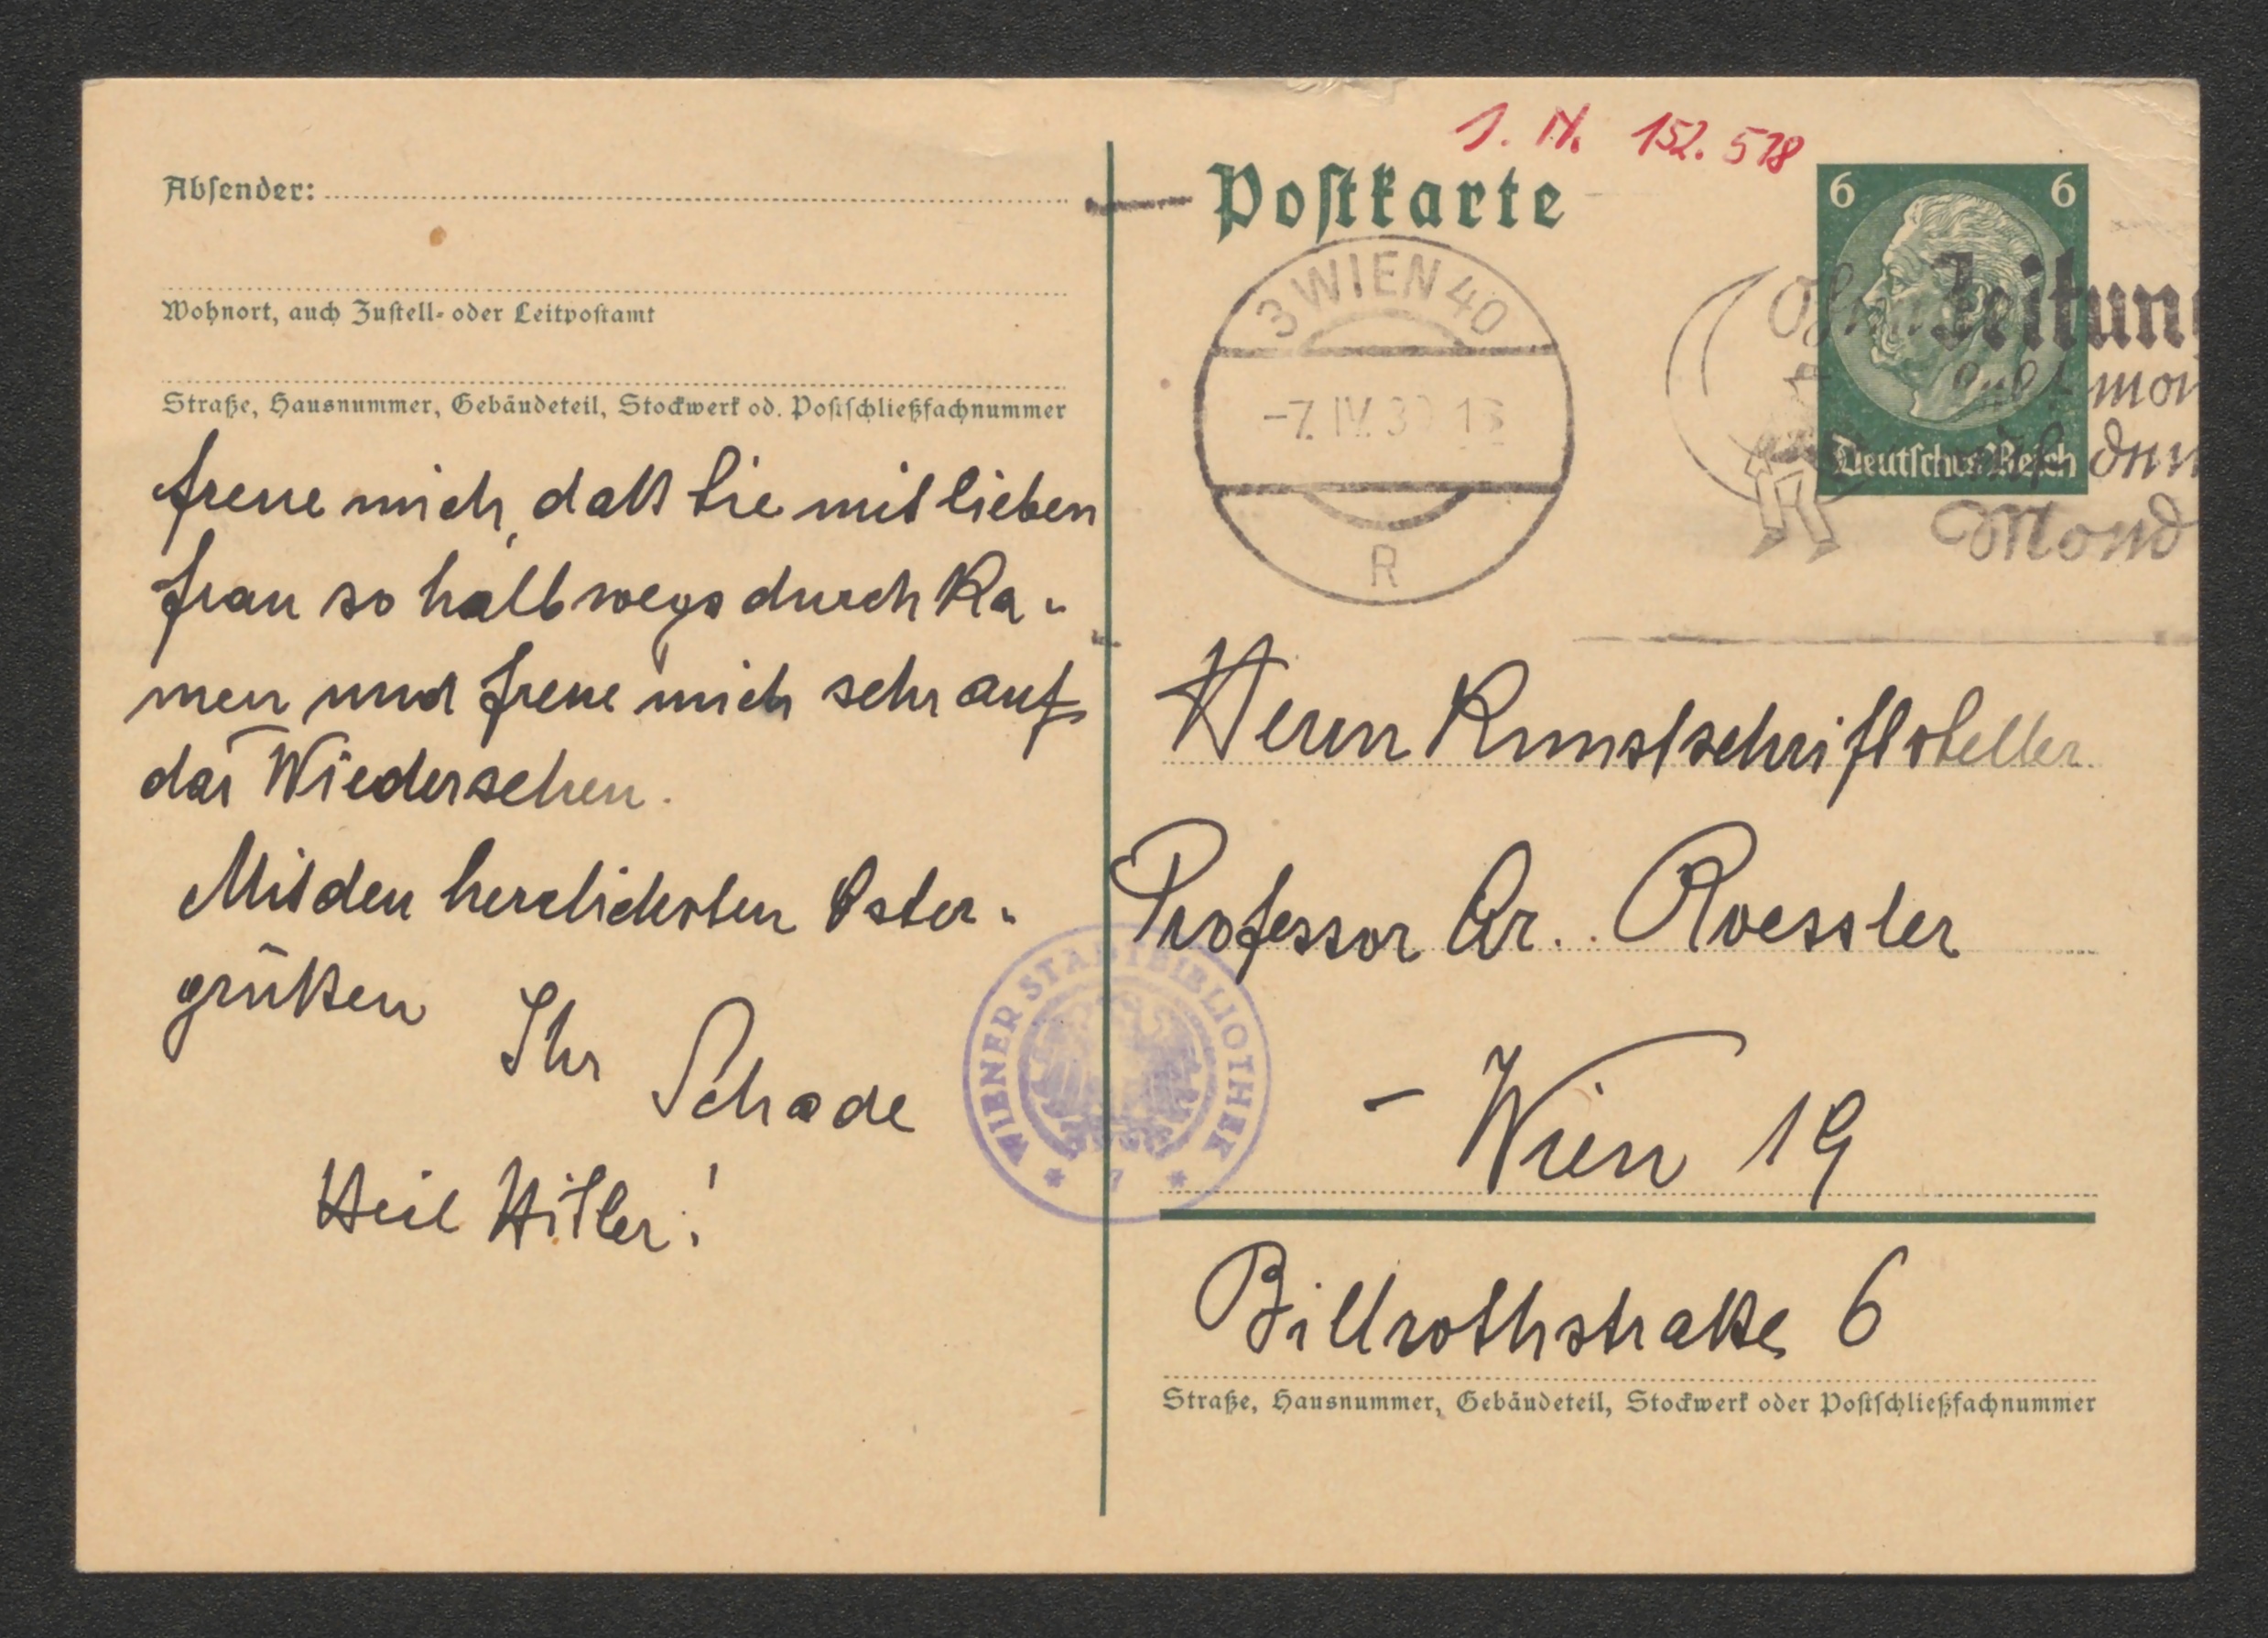 1. N. 152.518
Absender:
Wohnort, auch Zustell- oder Leitpostamt
Straße, Hausnummer, Gebäudeteil, Stockwerk od. Postschließfachnummer
freue mich, daß Sie mit lieben
Frau so halbwegs durch Ka-
men und freue mich sehr auf
das Wiedersehen.
Mit den herzlichsten Oster-
grüßen Ihr Schade
Heil Hitler!
Postkarte
6 6
Deutsches Reich
3 WIEN 40
-7. IV. 39
R
Ohne Zeitun
lebt man
auf dem
Mond
Herrn Kunstschriftsteller
Professor Dr. Roessler
- Wien 19
Billrothstraße 6
Straße, Hausnummer, Gebäudeteil, Stockwerk oder Postschließfachnummer
WIENER STADTBIBLIOTHEK
* 7 *